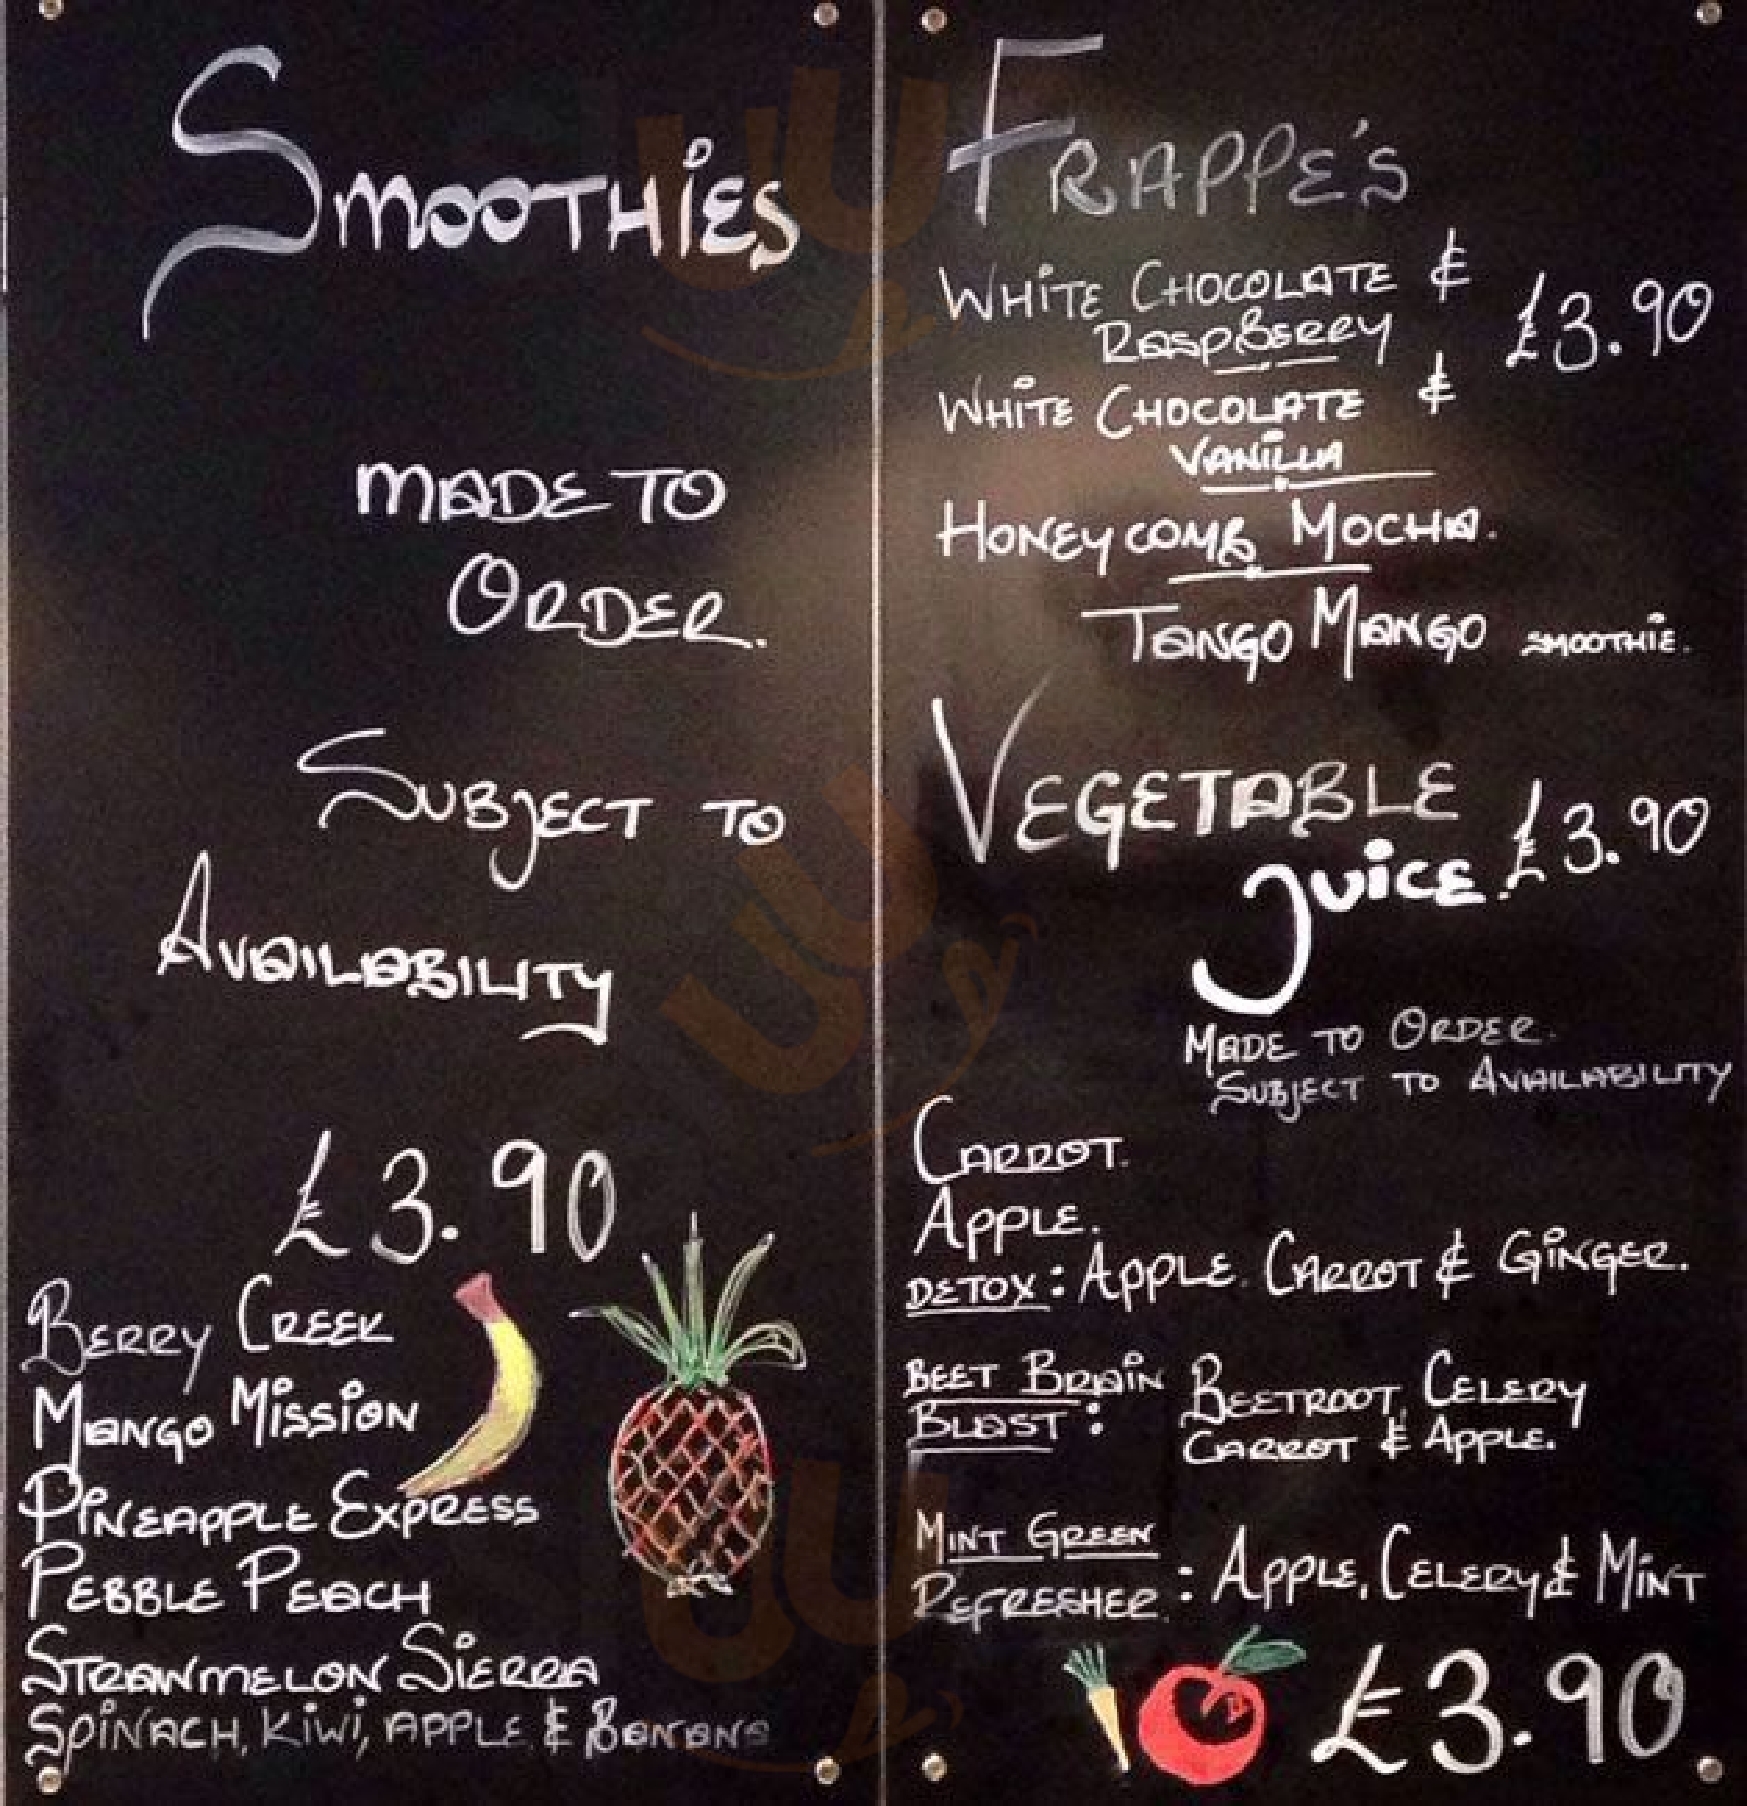 Smoothies
MADE TO
ORDER.
SUBJECT TO
AVAILABILITY
£3.90
BERRY CREEK
MANGO MISSION
PINEAPPLE EXPRESS
PEBBLE PEACH
STRAWMELON SIERRA
SPINACH, KIWI, APPLE & BANANA
FRAPPE'S
WHITE CHOCOLATE &
RASPBERRY
£3.90
WHITE CHOCOLATE &
VANILLA
HONEYCOMB MOCHA.
TANGO MANGO SMOOTHIE.
VEGETABLE
JUICE. £3.90
MADE TO ORDER.
SUBJECT TO AVAILABILITY
CARROT.
APPLE.
DETOX: APPLE. CARROT & GINGER.
BEET BRAIN
BLAST:
BEETROOT, CELERY
CARROT & APPLE.
MINT GREEN
REFRESHER.
: APPLE, CELERY & MINT
£3.90